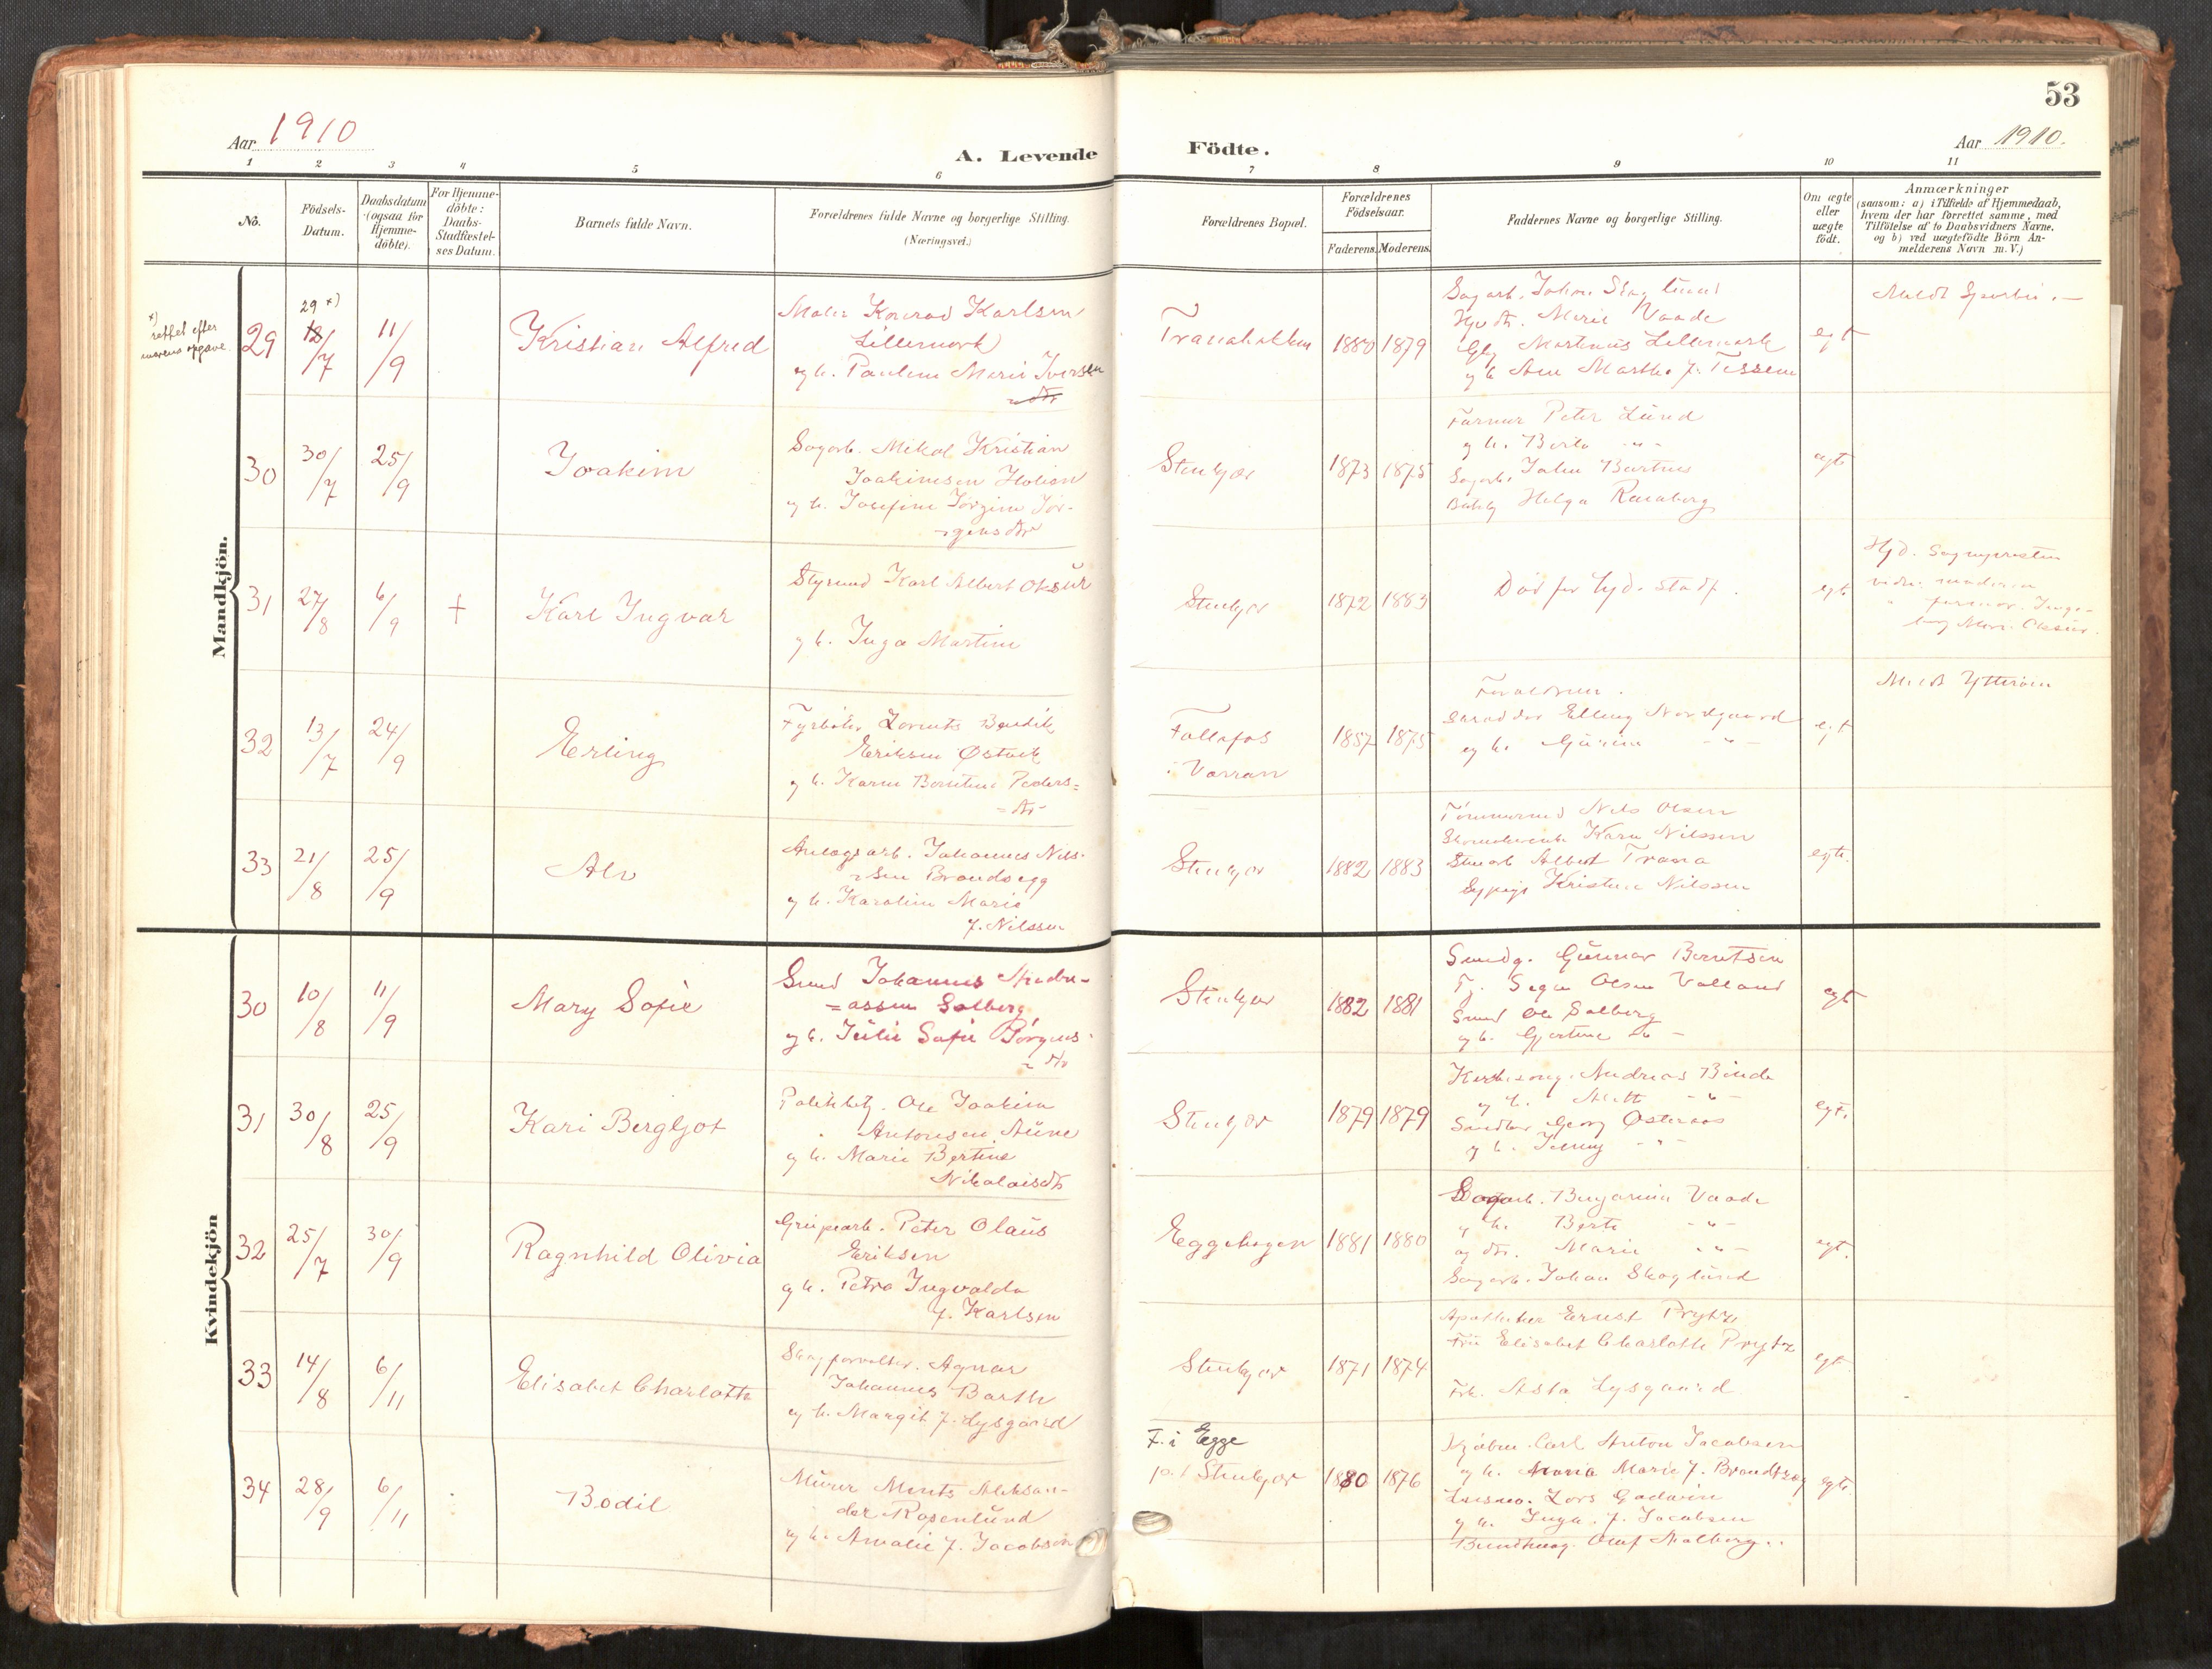 53
Aar 1910
Aar 1910.
A. Levende Födte.
1 2 3 4 5 6 7 8 9 10 11
No.
Födsels-
Datum.
Daabsdatum
(ogsaa for
Hjemme-
döbte).
For Hjemme-
döbte:
Daabs-
Stadfæstel-
ses Datum.
Barnets fulde Navn.
Forældrenes fulde Navne og borgerlige Stilling.
(Næringsvei.)
Forældrenes Bopæl.
Forældrenes
Födselsaar.
Faderens. Moderens.
Faddernes Navne og borgerlige Stilling.
Om ægte
eller
uægte
födt.
Anmærkninger
(saasom: a) i Tilfælde af Hjemmedaab,
hvem der har forrettet samme, med
Tilföielse af to Daabsvidners Navne.
og b) ved uægtefödte Börn An-
melderens Navn m. V.)
Mandkjön.
x)
rettet efter
morens opgave.
29
29 x)
18/7
11/9
Kristian Alfred
Maler Konrad Karlsen
Lillemark
og h. Pauline Marie Iversen
Tranabakken
1880 1879
Sagarb. Johan Skoglund
Marie Vaade
Martinus Lillemark
og h. Ane Marthe f. Tessem
egt
Meldt Sparbu.
30
30/7
25/9
Joakim
Sagarb. Mikal Kristian
Joakimsen Holien
og h. Josefine Jörgine Jör-
gensdtr
Stenkjær
1873 1875
Farmer Peter Lund
og h. Berta -"-
Sagarb. John Bartnes
Helga Ranaberg
egt
31
27/8
6/9
+
Karl Ingvar
Styrmd Karl Albert Oksür
og h. Inga Martine
Stenkjær
1872 1883
Död för Stadf.
egt
Hjd. Sognepresten
vidn. moderen
" farmor. Inge-
borg Oksür.
32
13/7
24/9
Erling
Fyrböter Lorents Bendik
Eriksen Østvik
og h. Karen Berntine Peders=
=dtr
Follafos
i Varran
1857 1875
Forældrene.
Skrædder Elling Nordgaard
og h. Gurine -"-
egt
Meldt Ytterøen
33
21/8
25/9
Alv
Anlægsarb. Johannes Nils-
sen Brandsegg
og h. Karoline Marie
f. Nilssen
Stenkjær
1882 1883
Tömmermd Nils Olsen
Karen Nilssen
Albert Trana
Sypige Kristine Nilssen
egte.
Kvindekjön
30
10/8
11/9
Mary Sofie
Smed Johannes Andre-
=assen Solberg
og h. Julie Sofie Börgens-
dtr
Stenkjær
1882 1881
Smedg. Gunnar Berntsen
Tj. Signe Olsen Valland
Smed Ole Solberg
og h. Gjertine -"-
egt
31
30/8
25/9
Kari Bergljot
Politibetj. Ole Joakim
Antonsen Aune
og h. Marie Bertine
Nikolaisdtr
Stenkjær
1879 1879
Andreas Binde
og h. Mette -"-
Georg Østeraas
og h. Jenny -"-
egt.
32
25/7
30/9
Ragnhild Olivia
Grubearb. Peter Olaus
Eriksen
og h. Petra Ingvalda
f. Karlsen
Eggehagen
1881 1880
Sagarb. Benjamin Vaade
og h. Berte -"-
og dtr. Marie -"-
Sagarb. Johan Skoglund
egt.
33
14/8
6/11
Elisabet Charlotte
Skogforvalter. Agnar
Johannes Barth
og h. Margit f. Lysgaard
Stenkjær
1871 1874
Apotheker Ernst Prytz,
Fru Elisabet Charlotte Prytz
Frk. Asta Lysgaard
egt
34
28/9
6/11
Bodil
Murer Ments Aleksan-
der Rosenlund
og h. Amalie f. Jacobsen
F. i Egge
p. t. Stenkjær
1880 1876
Kjöbm. Carl Anton Jacobsen
og h. Maria Marie f. Brandtzæg
Lars Gadvin
og h. Inga f. Jacobsen
Olaf Malberg..
egte.